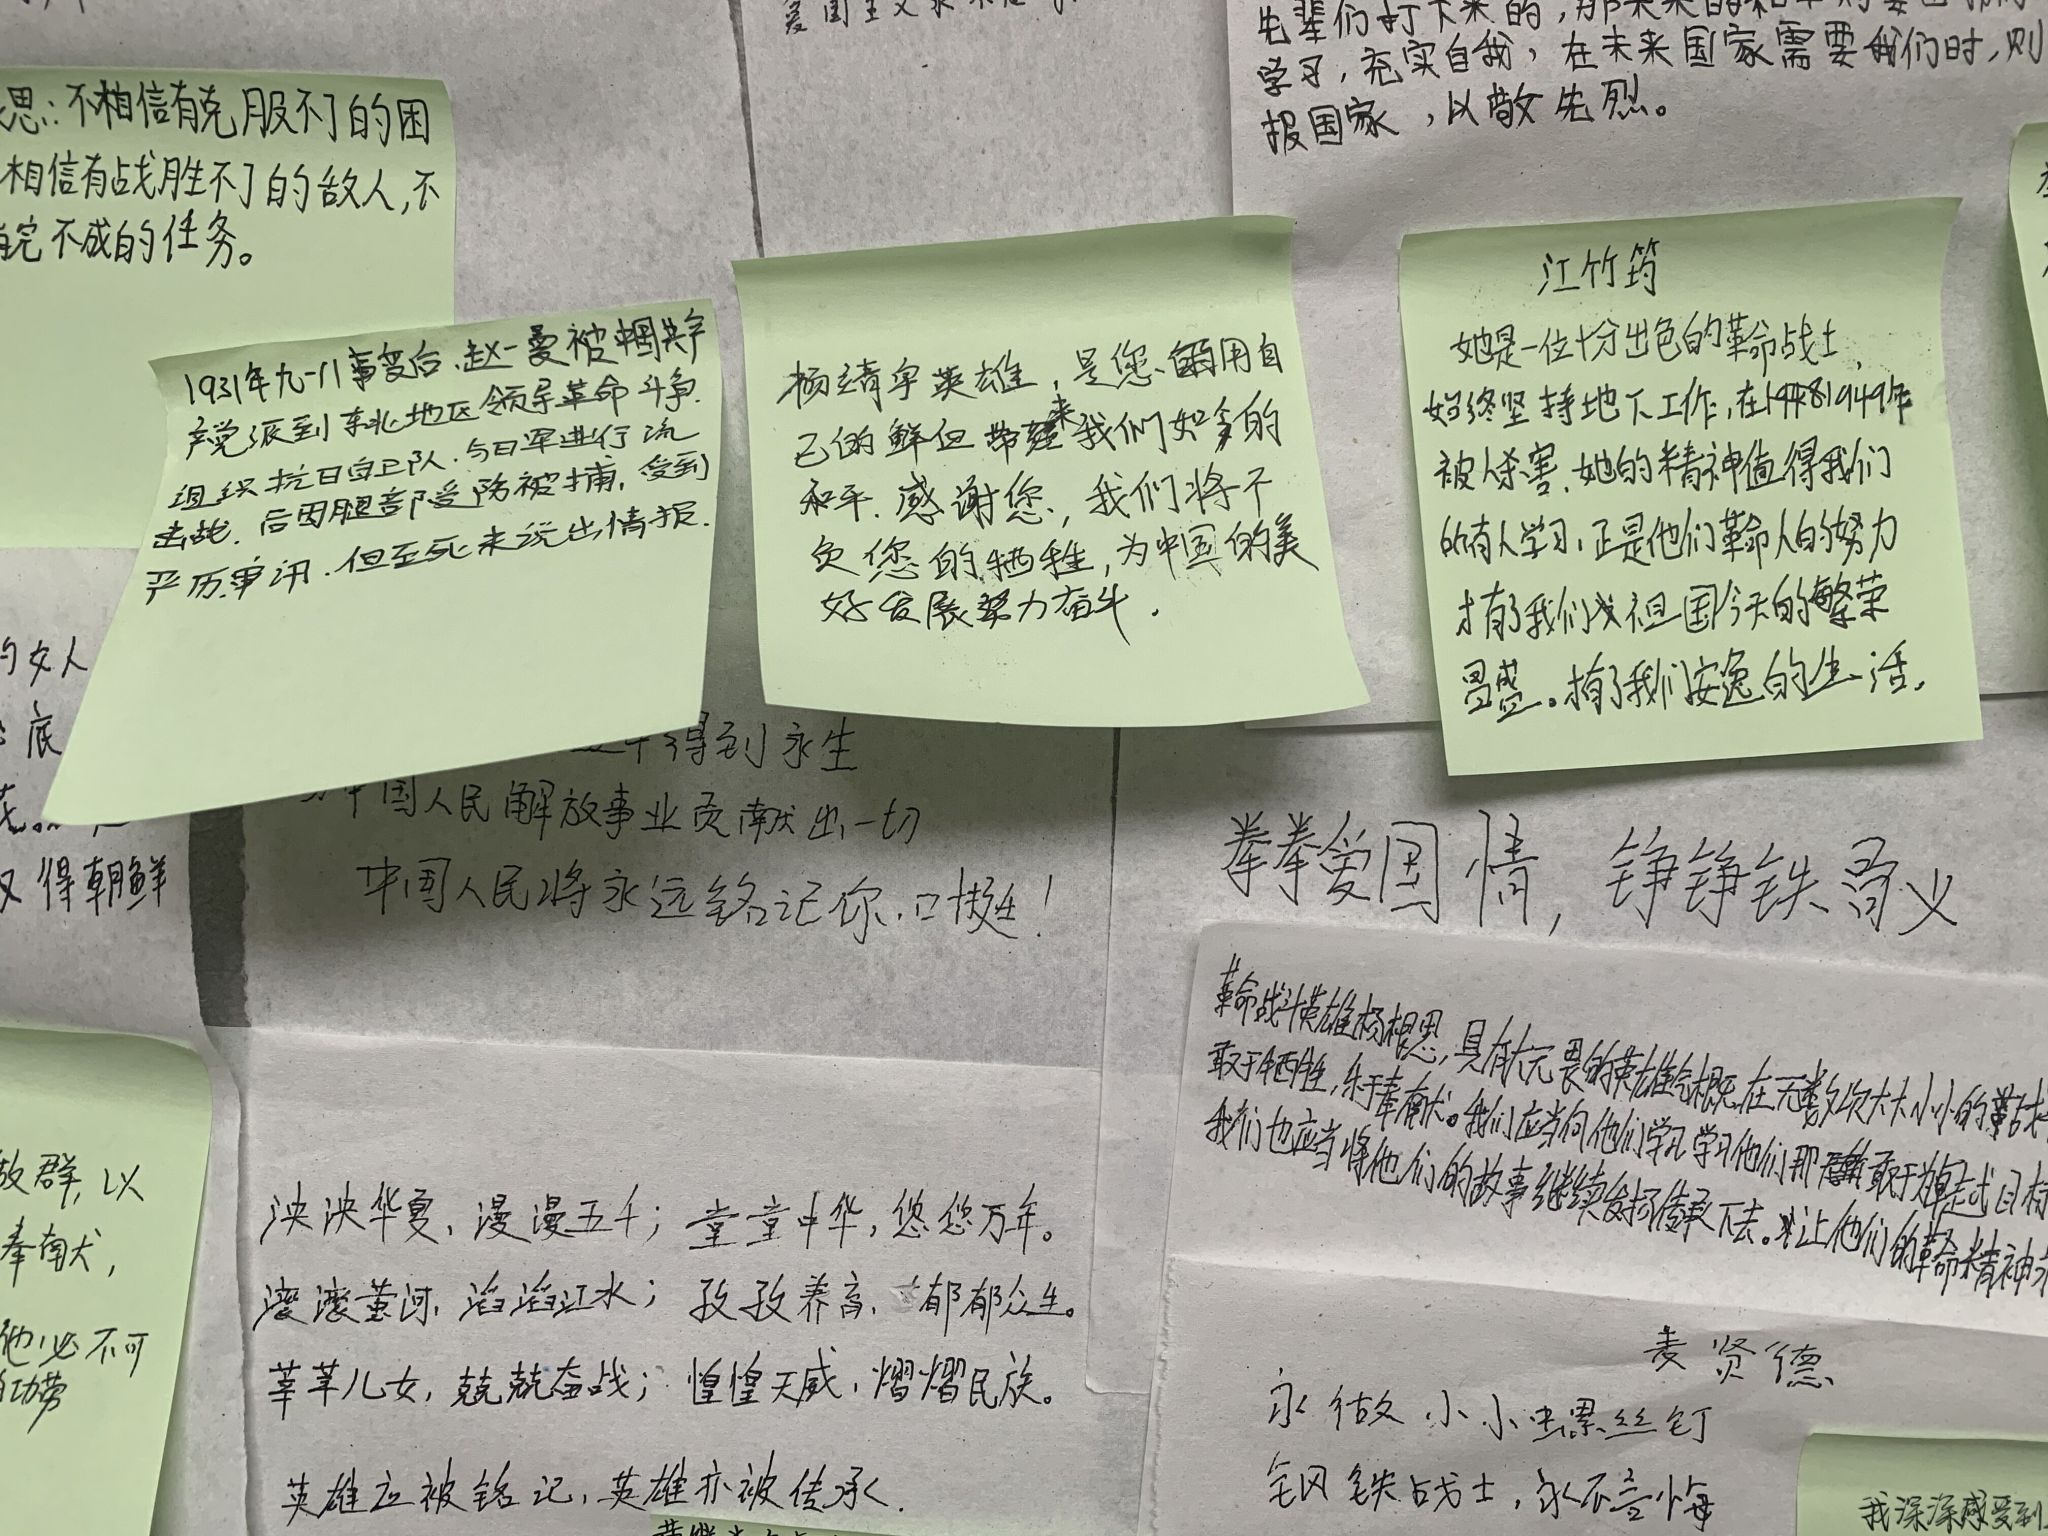 先辈们打下来的,那未来的和平则要
学习,充实自我,在未来国家需要我们时,则
报国家,以敬先烈。
思:不相信有克服不了的困
相信有战胜不了的敌人,不
完不成的任务。
1931年九一八事变后.赵一曼被中国共产
党派到东北地区领导革命斗争.
组织抗日自卫队.与日军进行流
击战.后因腿部受防被捕.受到
严历审讯.但至死未说出情报.
杨靖宇英雄,是您、用自
己的鲜但带来我们如多的
和平.感谢您,我们将不
负您的牺牲,为中国的美
好发展努力奋斗.
江竹筠
她是一位十分出色的革命战士,
始终坚持地下工作,在1949年
被人杀害.她的精神值得我们
所有人学习,正是他们革命人的努力
才有了我们祖国今天的繁荣
昌盛。才有了我们安逸的生活.
的女人
底
得朝鲜
得到永生
中国人民解放事业贡献出一切
中国人民将永远铭记你.
拳拳爱国情,铮铮铁骨义
革命战斗英雄杨根思,具有大无畏的英雄气概.在无数次大大小小的
敢于牺牲,乐于奉献。我们应当向他们学习.学习他们那敢于超越目标
我们也应当将他们的故事继续发扬传承下去。让他们的革命精神
敌群,以
奉献,
他必不可
功劳
泱泱华夏,漫漫五千;堂堂中华,悠悠万年。
滚滚黄河,滔滔江水;孜孜养育,郁郁众生。
莘莘儿女,兢兢奋战;惶惶天威,熠熠民族。
英雄应被铭记,英雄亦被传承.
麦贤德
永做小小螺丝钉
钢铁战士,永不言悔
我深深感受到